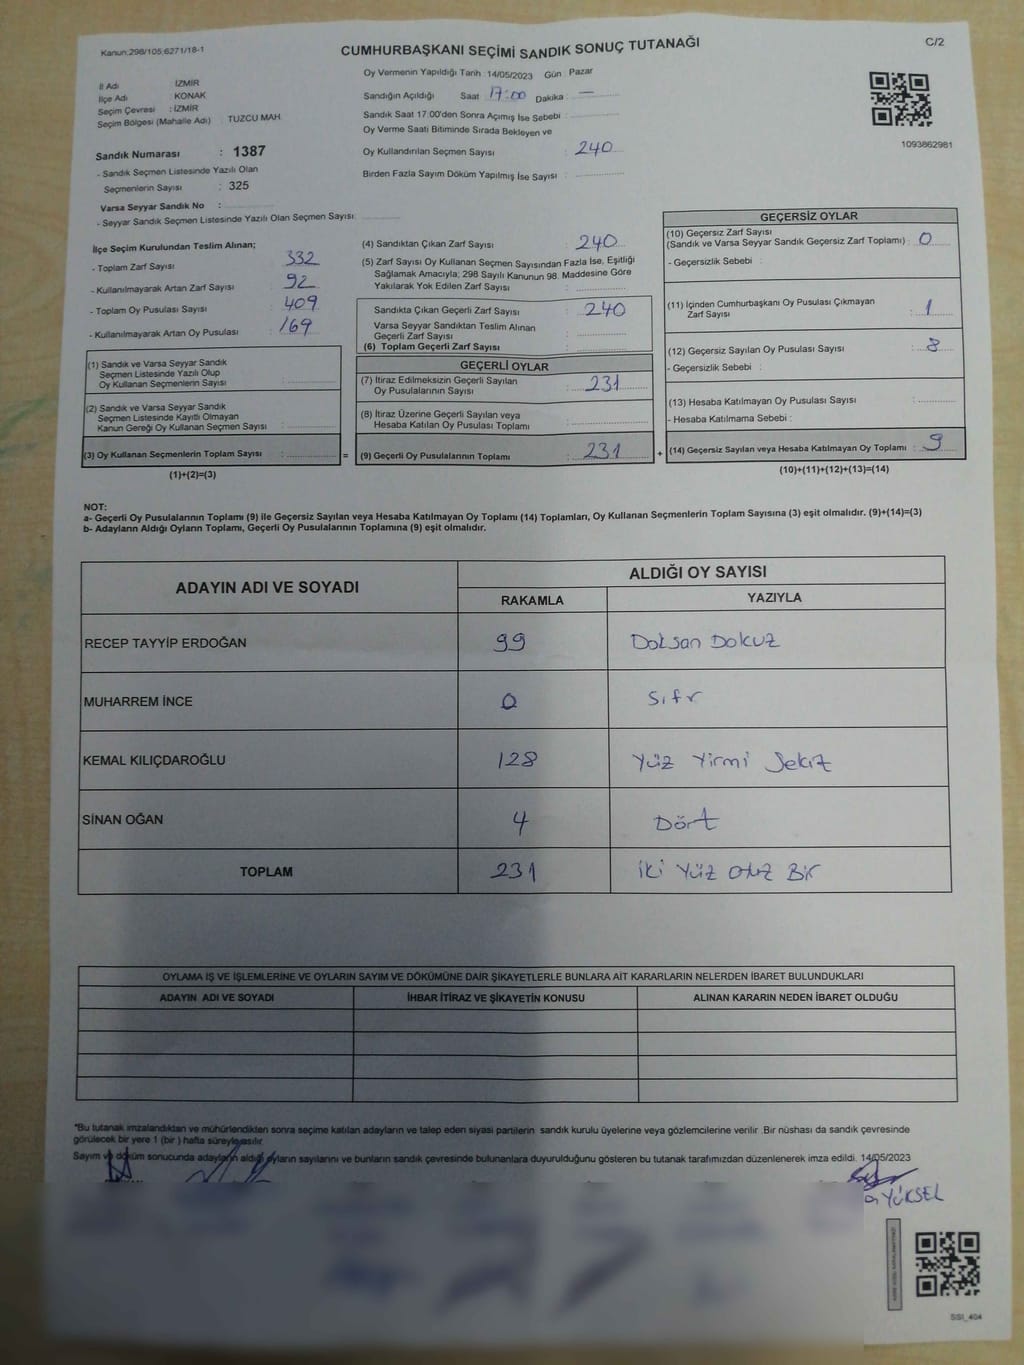 Kanun:298/105;6271/18-1
CUMHURBAŞKANI SEÇİMİ SANDIK SONUÇ TUTANAĞI
C/2
İl Adı : İZMİR
İlçe Adı : KONAK
Seçim Çevresi : İZMİR
Seçim Bölgesi (Mahalle Adı) : TUZCU MAH.
Sandık Numarası : 1387
- Sandık Seçmen Listesinde Yazılı Olan
Seçmenlerin Sayısı : 325
Varsa Seyyar Sandık No :
- Seyyar Sandık Seçmen Listesinde Yazılı Olan Seçmen Sayısı :
Oy Vermenin Yapıldığı Tarih : 14/05/2023 Gün : Pazar
Sandığın Açıldığı Saat : 17:00 Dakika : —
Sandık Saat 17.00'den Sonra Açımış İse Sebebi :
Oy Verme Saati Bitiminde Sırada Bekleyen ve
Oy Kullandırılan Seçmen Sayısı : 240
Birden Fazla Sayım Döküm Yapılmış İse Sayısı :
1093862981
İlçe Seçim Kurulundan Teslim Alınan;
- Toplam Zarf Sayısı : 332
- Kullanılmayarak Artan Zarf Sayısı : 92
- Toplam Oy Pusulası Sayısı : 409
- Kullanılmayarak Artan Oy Pusulası : 169
(1) Sandık ve Varsa Seyyar Sandık
Seçmen Listesinde Yazılı Olup
Oy Kullanan Seçmenlerin Sayısı :
(2) Sandık ve Varsa Seyyar Sandık
Seçmen Listesinde Kayıtlı Olmayan
Kanun Gereği Oy Kullanan Seçmen Sayısı :
(3) Oy Kullanan Seçmenlerin Toplam Sayısı : =
(1)+(2)=(3)
(4) Sandıktan Çıkan Zarf Sayısı : 240
(5) Zarf Sayısı Oy Kullanan Seçmen Sayısından Fazla İse, Eşitliği
Sağlamak Amacıyla; 298 Sayılı Kanunun 98. Maddesine Göre
Yakılarak Yok Edilen Zarf Sayısı :
Sandıkta Çıkan Geçerli Zarf Sayısı : 240
Varsa Seyyar Sandıktan Teslim Alınan
Geçerli Zarf Sayısı :
(6) Toplam Geçerli Zarf Sayısı :
GEÇERLİ OYLAR
(7) İtiraz Edilmeksizin Geçerli Sayılan
Oy Pusulalarının Sayısı : 231
(8) İtiraz Üzerine Geçerli Sayılan veya
Hesaba Katılan Oy Pusulası Toplamı :
(9) Geçerli Oy Pusulalarının Toplamı : 231 +
GEÇERSİZ OYLAR
(10) Geçersiz Zarf Sayısı
(Sandık ve Varsa Seyyar Sandık Geçersiz Zarf Toplamı) : 0
- Geçersizlik Sebebi :
(11) İçinden Cumhurbaşkanı Oy Pusulası Çıkmayan
Zarf Sayısı : 1
(12) Geçersiz Sayılan Oy Pusulası Sayısı : 8
- Geçersizlik Sebebi :
(13) Hesaba Katılmayan Oy Pusulası Sayısı :
- Hesaba Katılmama Sebebi :
(14) Geçersiz Sayılan veya Hesaba Katılmayan Oy Toplamı : 9
(10)+(11)+(12)+(13)=(14)
NOT:
a- Geçerli Oy Pusulalarının Toplamı (9) ile Geçersiz Sayılan veya Hesaba Katılmayan Oy Toplamı (14) Toplamları, Oy Kullanan Seçmenlerin Toplam Sayısına (3) eşit olmalıdır. (9)+(14)=(3)
b- Adayların Aldığı Oyların Toplamı, Geçerli Oy Pusulalarının Toplamına (9) eşit olmalıdır.
ADAYIN ADI VE SOYADI ALDIĞI OY SAYISI
RAKAMLA YAZIYLA
RECEP TAYYİP ERDOĞAN 99 Doksan Dokuz
MUHARREM İNCE 0 Sıfır
KEMAL KILIÇDAROĞLU 128 Yüz Yirmi Sekiz
SİNAN OĞAN 4 Dört
TOPLAM 231 İki Yüz Otuz Bir
OYLAMA İŞ VE İŞLEMLERİNE VE OYLARIN SAYIM VE DÖKÜMÜNE DAİR ŞİKAYETLERLE BUNLARA AİT KARARLARIN NELERDEN İBARET BULUNDUKLARI
ADAYIN ADI VE SOYADI İHBAR İTİRAZ VE ŞİKAYETİN KONUSU ALINAN KARARIN NEDEN İBARET OLDUĞU
*Bu tutanak imzalandıktan ve mühürlendikten sonra seçime katılan adayların ve talep eden siyasi partilerin sandık kurulu üyelerine veya gözlemcilerine verilir .Bir nüshası da sandık çevresinde
görülecek bir yere 1 (bir ) hafta süreyle asılır.
Sayım ve döküm sonucunda adayların aldığı oyların sayılarını ve bunların sandık çevresinde bulunanlara duyurulduğunu gösteren bu tutanak tarafımızdan düzenlenerek imza edildi. 14/05/2023
YÜKSEL
SSI_404